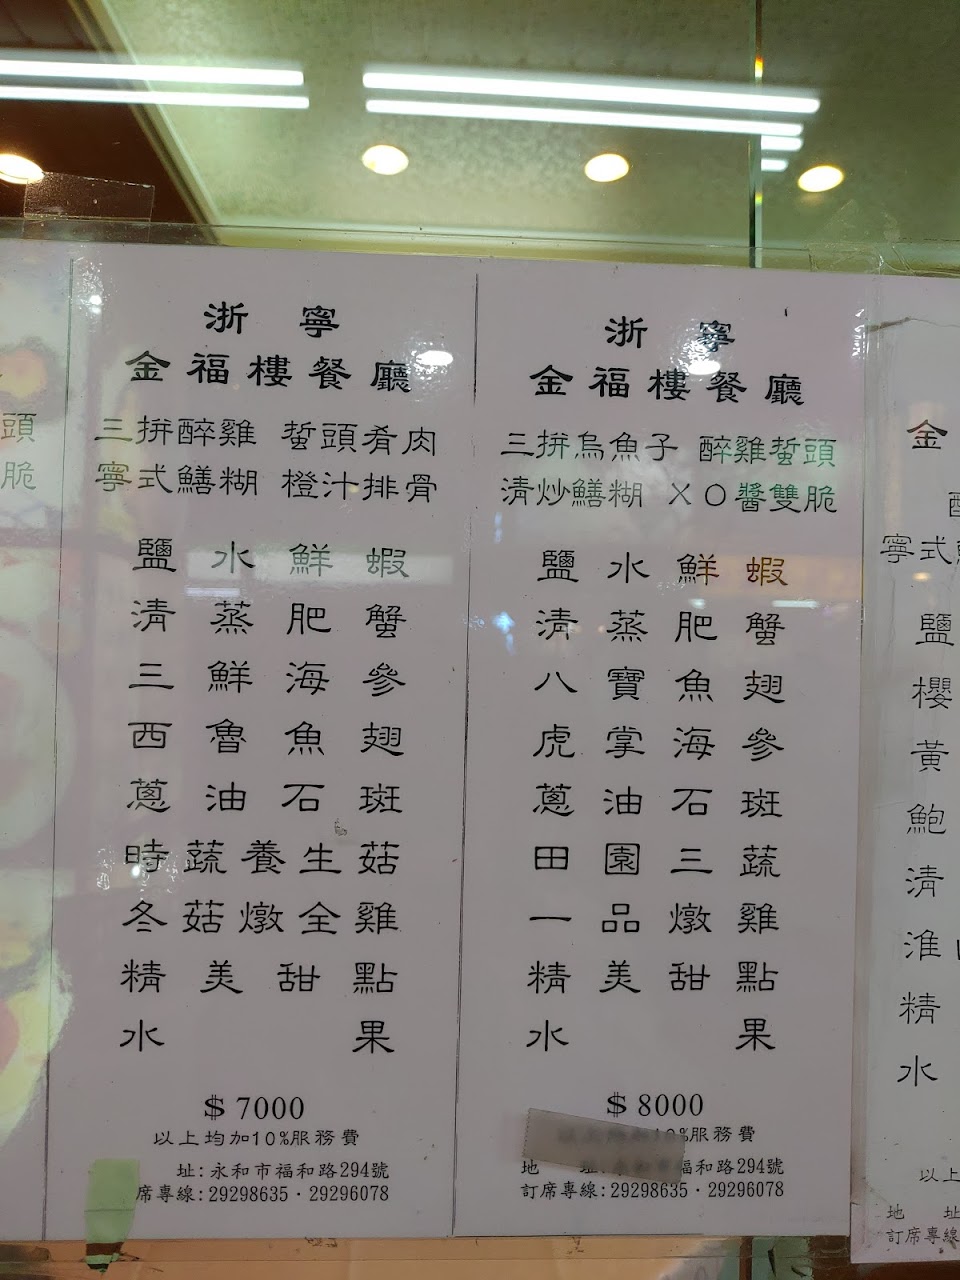 頭
脆
浙寧
金福樓餐廳
三拼醉雞 蜇頭肴肉
寧式鱔糊 橙汁排骨
鹽水鮮蝦
清蒸肥蟹
三鮮海參
西魯魚翅
蔥油石斑
時蔬養生菇
冬菇燉全雞
精美甜點
水果
$7000
以上均加10%服務費
址:永和市福和路294號
席專線:29298635·29296078
浙寧
金福樓餐廳
三拼烏魚子 醉雞蜇頭
清炒鱔糊 XO醬雙脆
鹽水鮮蝦
清蒸肥蟹
八寶魚翅
虎掌海參
蔥油石斑
田園三蔬
一品燉雞
精美甜點
水果
$8000
以上均加10%服務費
地 址:永和市福和路294號
訂席專線:29298635·29296078
金
寧式
鹽
櫻
黃
鮑
清
淮
精
水
以上
地 址
訂席專線